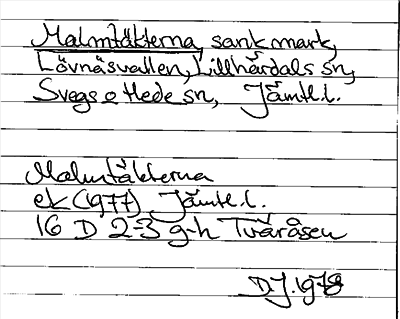 Malmtäkterna, sank mark,
Lövnäsvallen, Lillhärdals sn,
Svegs o Hede sn, Jämtl.l.
Malmtäkterna
ek (1977), Jämtl.l.
16 D 2-3 g-h Tvåråsen
D.J. 1978